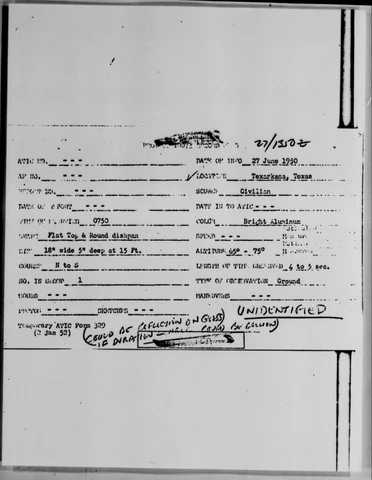 27/1350Z
ATIC NO. - - - DATE OF INFO 27 June 1950
AF NO. - - - LOCATION Texarkana, Texas
REPORT NO. - - - SOURCE Civilian
DATE OF REPORT - - - DATE IN TO ATIC - - -
TIME OF 0750 COLOR Bright Aluminum
SHAPE Flat Top & Round dishpan SPEED - - -
SIZE 18" wide 5" deep at 15 Ft. ALTITUDE 65° - 75°
COURSE N to S LENGTH OF TIME OBSERVED 4 to 5 sec.
NO. IN GROUP 1 TYPE OF OBSERVATION Ground
SOUND - - - MANEUVERS - - -
PHOTOS - - - SKETCHES - - - UNIDENTIFIED
Temporary ATIC Form 329
(2 Jan 52)
(COULD BE REFLECTION ON GLASS)
IF DURATION